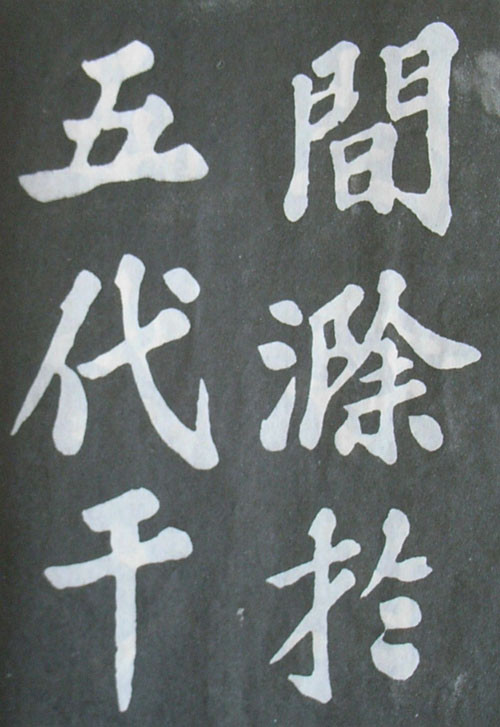 間滁於
五代干